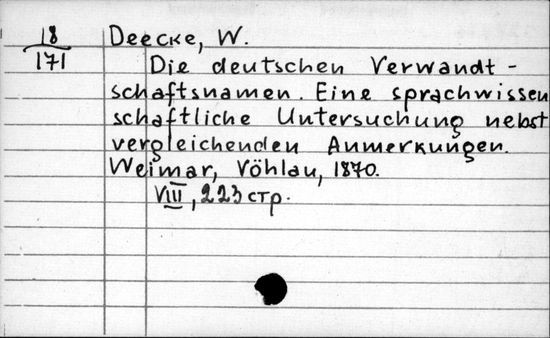 18
171
Deecke, W.
Die deutschen Verwandt-
schaftsnamen. Eine sprachwissen
schaftliche Untersuchung nebst
vergleichenden Anmerkungen.
Weimar, Vöhlau, 1870.
VIII, 223 стр.